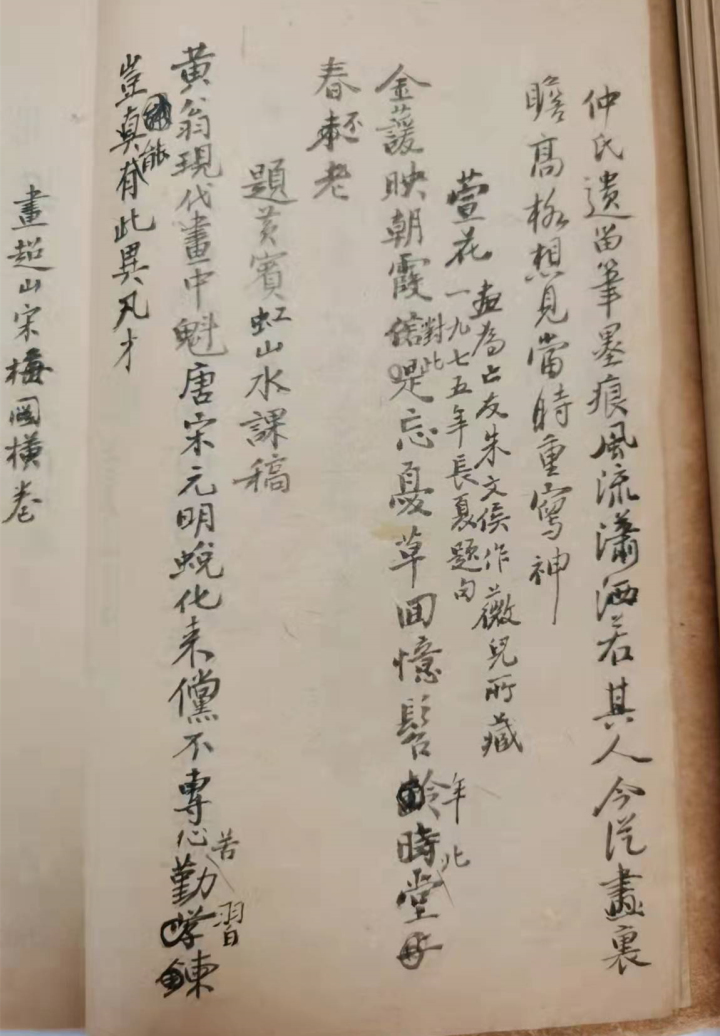 仲氏遺留筆墨痕風流瀟洒若其人今從畫裏
瞻高格想見當時重寫神
萱花
畫為亡友朱文侯作薇兒所藏
一九七五年長夏題句
金萱映朝霞信是忘憂草回憶髫齡時堂母
對此
年北
春還老
題黃賓虹山水課稿
黃翁現代畫中魁唐宋元明蛻化來儻不專心勤學練
苦習
豈真有此異凡才
能
畫超山宋梅圖橫卷